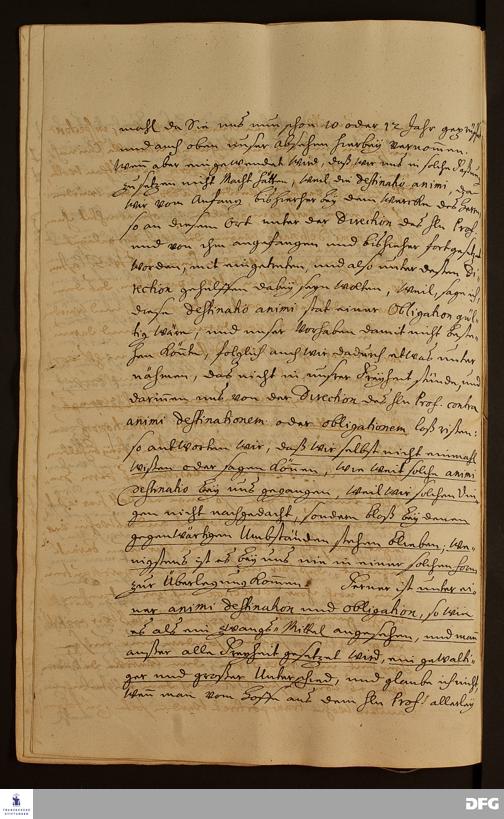 mahl da Sie uns nun schon 10 oder 12 Jahr geprüfet
und auch oben unser Absehen hierbey vernommen.
Wenn aber eingewendet wird, daß wir uns in solche Freyheit
zu setzen nicht Macht hätten, weil die destinatio animi, nach
wir vom Anfang bishierher bey dem Wercke des Herrn,
so an diesem Ort unter der Direction des Hn Prof.
und von ihm angefangen und bishieher fortgesetzet
worden, mit eingetreten, und also unter dessen Di-
rection gehülffen dabey seyn wolten, weil, sage ich,
diese destinatio animi stat einer Obligation gül-
tig wäre, und unser Vorhaben damit nicht beste-
hen könte, folglich auch wir dadurch etwas unter
nähmen, das nicht in unsrer Freyheit stünde, und
darinnen uns von der Direction des Hn Prof. contra
animi destinationem oder obligationem loß rissen:
so antworten wir, daß wir selbst nicht einmahl
wissen oder sagen können, wie weit solche animi
destinatio bey uns gegangen, weil wir solchen Din-
gen nicht nachgedacht, sondern bloß bey denen
gegenwärtigen Umbständen stehen blieben, we-
nigstens ist es bey uns nie in einer solchen Form
zur Überlegung kommen. Ferner ist unter ei-
ner animi destination und obligation, so wie
es als ein Zwangs-Mittel angesehen, und man
außer alle Freyheit gesetzet wird, ein gewalti-
ger und großer Unterschied, und glaube ich nicht,
wenn man vom Hoffe aus dem Hn Prof. allerley
FRANCKESCHE
STIFTUNGEN
DFG